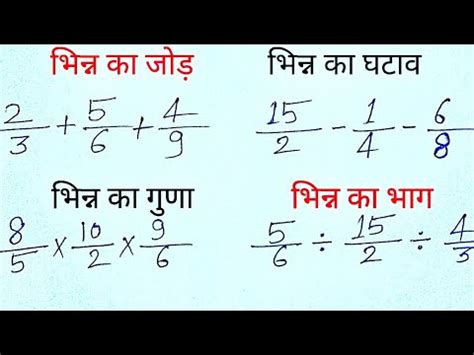 भिन्न का जोड़
2/3 + 5/6 + 4/9
भिन्न का घटाव
15/2 - 1/4 - 6/8
भिन्न का गुणा
8/5 × 10/2 × 9/6
भिन्न का भाग
5/6 ÷ 15/2 ÷ 4/3